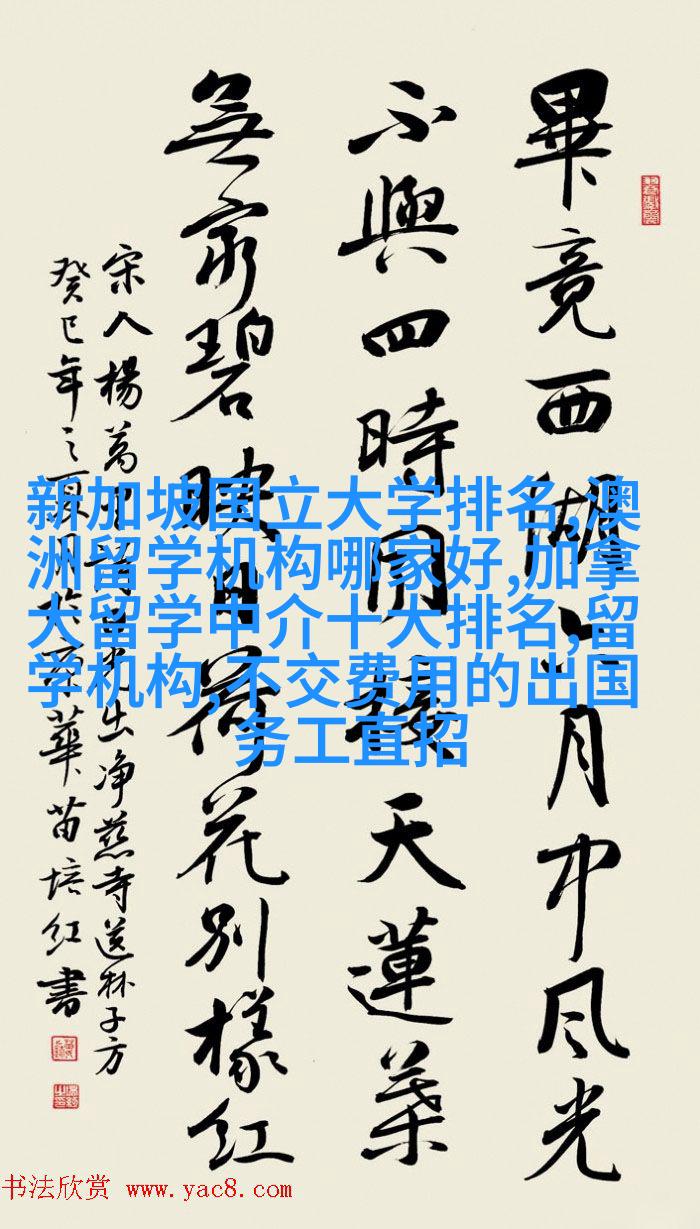 畢竟西湖六月中風光
不與四時同接天蓮葉
無窮碧映日荷花別樣紅
宋人楊萬里詩曉出净慈寺送林子方
癸巳年之夏月於京華苗培红書
新加坡国立大学排名,澳
洲留学机构哪家好,加拿
大留学中介十大排名,留
学机构,不交费用的出国
务工直招
书法欣赏 www.yac8.com